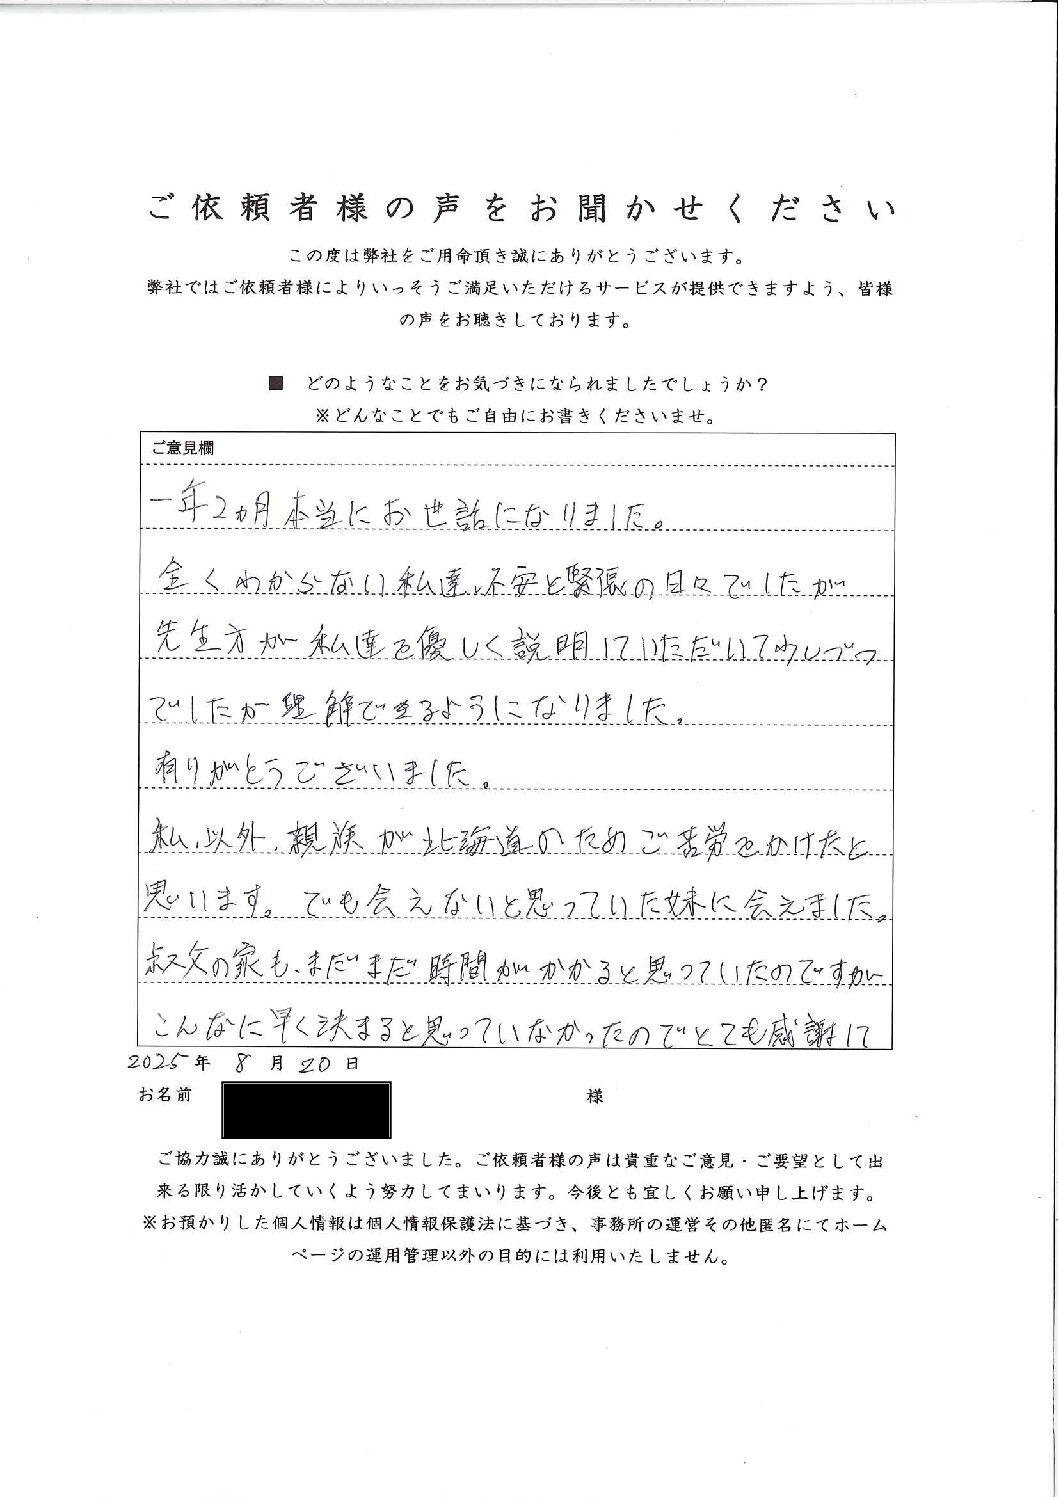 ご依頼者様の声をお聞かせください
この度は弊社をご用命頂き誠にありがとうございます。
弊社ではご依頼者様によりいっそうご満足いただけるサービスが提供できますよう、皆様
の声をお聴きしております。
■ どのようなことをお気づきになられましたでしょうか？
※どんなことでもご自由にお書きくださいませ。
ご意見欄
一年2ヵ月本当にお世話になりました。
全くわからない私達、不安と緊張の日々でしたが
先生方が私達を優しく説明していただいて少しづつ
でしたが理解できるようになりました。
有りがとうございました。
私、以外、親族が北海道のためご苦労をかけたと
思います。でも会えないと思っていた妹に会えました。
叔父の家も、まだまだ時間がかかると思っていたのですが
こんなに早く決まると思っていなかったのでとても感謝して
2025年 8月20日
お名前 様
ご協力誠にありがとうございました。ご依頼者様の声は貴重なご意見・ご要望として出
来る限り活かしていくよう努力してまいります。今後とも宜しくお願い申し上げます。
※お預かりした個人情報は個人情報保護法に基づき、事務所の運営その他匿名にてホーム
ページの運用管理以外の目的には利用いたしません。